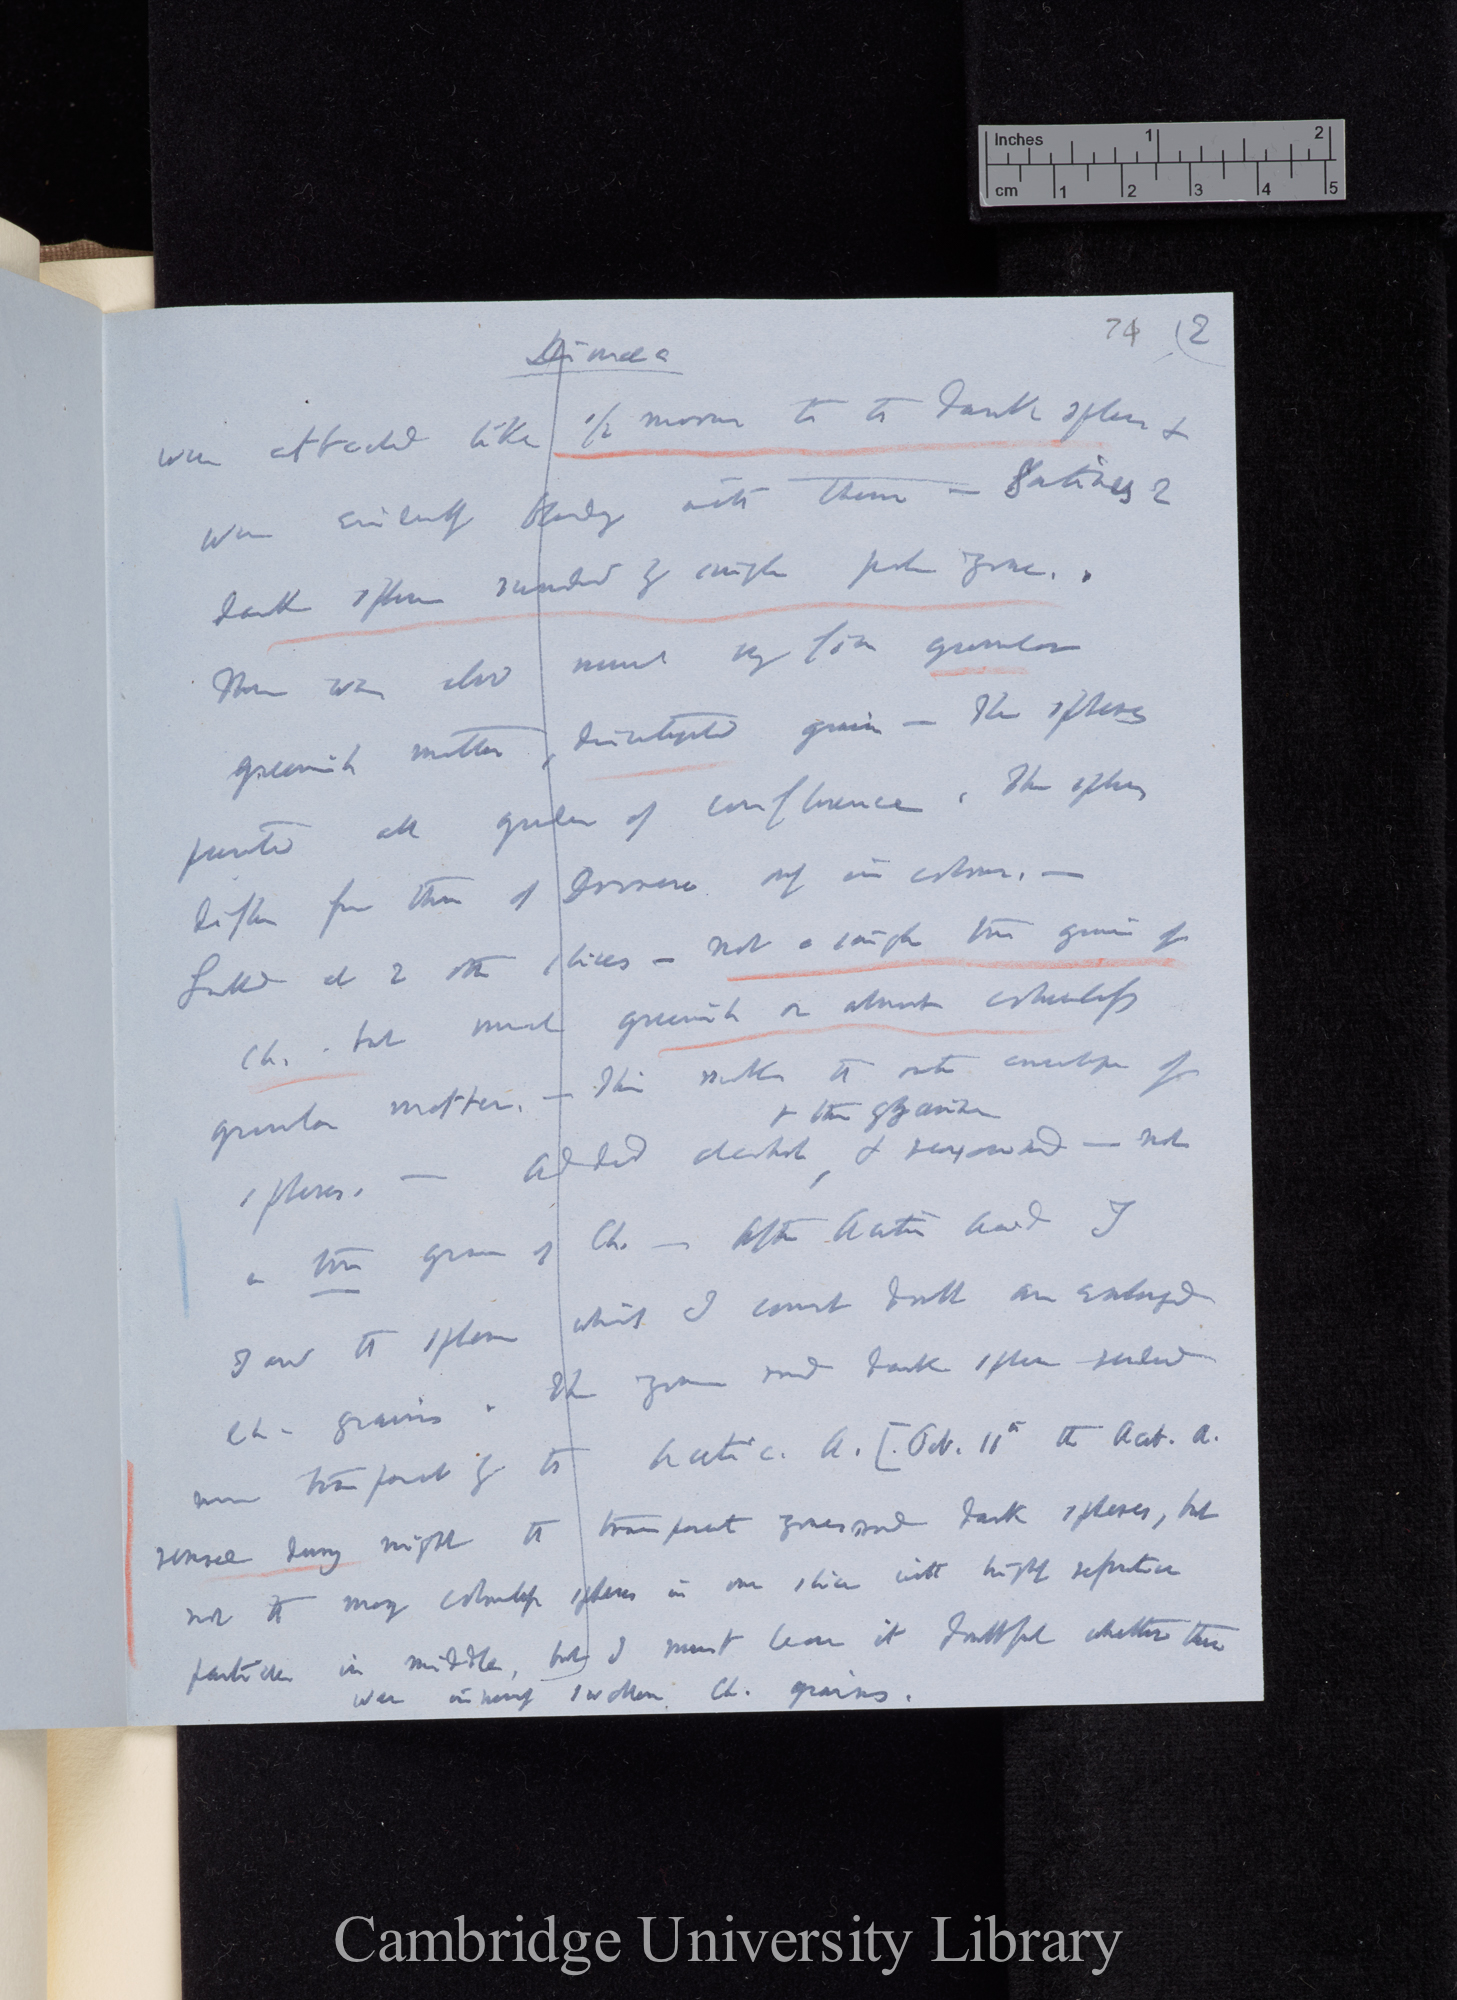 Inches 1 2
cm 1 2 3 4 5
74 (2
Dionaea
were attached like 1/2 moons to the dark spheres &
were evidently blendg with them —
dark spheres surrounded by single pale zone.
There was also much very fine granular
greenish matter, disintegrated grains — The spheres
presented all grades of confluence. The spheres
differ from those of Drosera only in colour. —
Looked at 2 other slices — not a single true grain of
Ch. but much greenish or almost colourless
granular matter. — This makes the outer envelope of
& then glycerine
spheres. — Added alcohol, & reexamined — not
a true grain of Ch. — After Acetic Acid I
saw the spheres which I cannot doubt are enlarged
Ch. grains. The zone round dark spheres rendered
more transparent by the Acetic. A. [Oct. 11th the Acet. A.
removed during night the transparent zones round dark spheres, but
not the many colourless spheres in one slice with highly refractive
particles in middle, but I must leave it doubtful whether these
were swollen Ch. grains.
Cambridge University Library